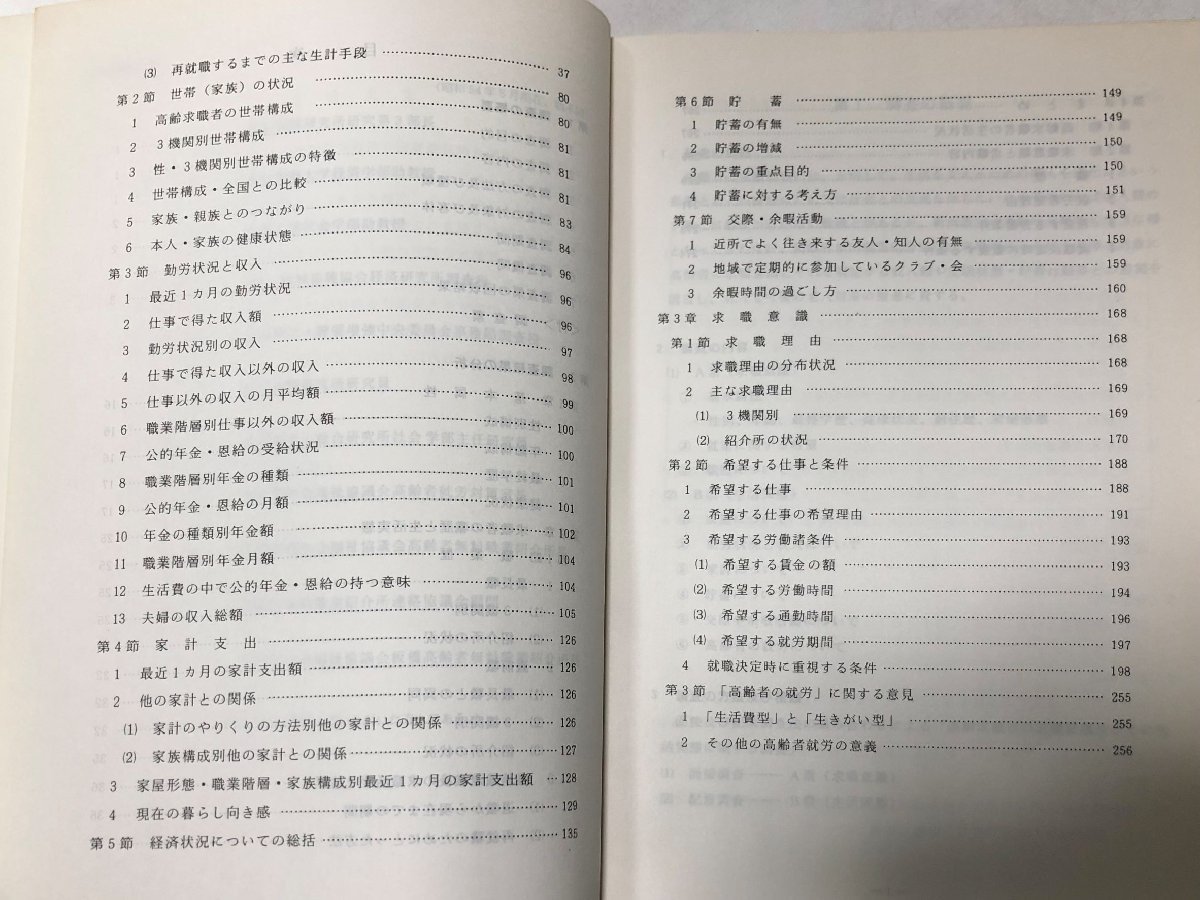 ⑶ 再就職するまでの主な生計手段 …… 37
第2節 世帯(家族)の状況 …… 80
1 高齢求職者の世帯構成 …… 80
2 3機関別世帯構成 …… 81
3 性・3機関別世帯構成の特徴 …… 81
4 世帯構成・全国との比較 …… 81
5 家族・親族とのつながり …… 83
6 本人・家族の健康状態 …… 84
第3節 勤労状況と収入 …… 96
1 最近1カ月の勤労状況 …… 96
2 仕事で得た収入額 …… 96
3 勤労状況別の収入 …… 97
4 仕事で得た収入以外の収入 …… 98
5 仕事以外の収入の月平均額 …… 99
6 職業階層別仕事以外の収入額 …… 100
7 公的年金・恩給の受給状況 …… 100
8 職業階層別年金の種類 …… 101
9 公的年金・恩給の月額 …… 101
10 年金の種類別年金額 …… 102
11 職業階層別年金月額 …… 104
12 生活費の中で公的年金・恩給の持つ意味 …… 104
13 夫婦の収入総額 …… 105
第4節 家計支出 …… 126
1 最近1カ月の家計支出額 …… 126
2 他の家計との関係 …… 126
⑴ 家計のやりくりの方法別他の家計との関係 …… 126
⑵ 家族構成別他の家計との関係 …… 127
3 家屋形態・職業階層・家族構成別最近1カ月の家計支出額 … 128
4 現在の暮らし向き感 …… 129
第5節 経済状況についての総括 …… 135
第6節 貯蓄 …… 149
1 貯蓄の有無 …… 149
2 貯蓄の増減 …… 150
3 貯蓄の重点目的 …… 150
4 貯蓄に対する考え方 …… 151
第7節 交際・余暇活動 …… 159
1 近所でよく往き来する友人・知人の有無 …… 159
2 地域で定期的に参加しているクラブ・会 …… 159
3 余暇時間の過ごし方 …… 160
第3章 求職意識 …… 168
第1節 求職理由 …… 168
1 求職理由の分布状況 …… 168
2 主な求職理由 …… 169
⑴ 3機関別 …… 169
⑵ 紹介所の状況 …… 170
第2節 希望する仕事と条件 …… 188
1 希望する仕事 …… 188
2 希望する仕事の希望理由 …… 191
3 希望する労働諸条件 …… 193
⑴ 希望する賃金の額 …… 193
⑵ 希望する労働時間 …… 194
⑶ 希望する通勤時間 …… 196
⑷ 希望する就労期間 …… 197
4 就職決定時に重視する条件 …… 198
第3節 「高齢者の就労」に関する意見 …… 255
1 「生活費型」と「生きがい型」 …… 255
2 その他の高齢者就労の意義 …… 256